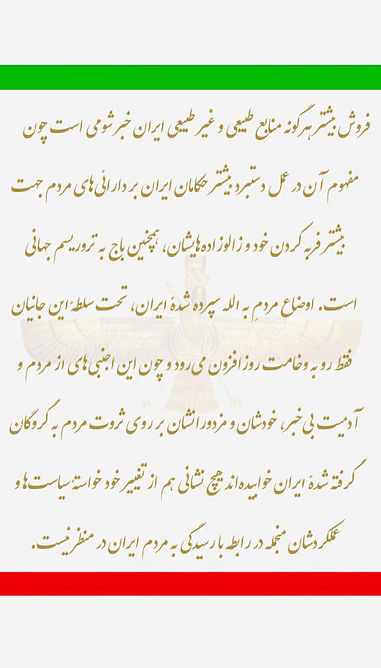 فروش بیشتر هرگونه منابع طبیعی و غیر طبیعی ایران خبر شومی است چون
مفهوم آن در عمل دستبرد بیشتر حکامان ایران بر دارائی‌های مردم جهت
بیشتر فربه کردن خود و زالوزاده‌هایشان، همچنین باج به تروریسم جهانی
است. اوضاع مردمِ به الله سپرده شدهٔ ایران، تحت سلطهٔ این جانیان
فقط رو به وخامت روزافزون می‌رود و چون این اجنبی‌های از مردم و
آدمیت بی‌خبر، خودشان و مزدورانشان بر روی ثروت مردم به گروگان
گرفته شدهٔ ایران خوابیده‌اند هیچ نشانی هم از تغییر خود خواستهٔ سیاست‌ها و
عملکردشان منجمله در رابطه با رسیدگی به مردم ایران در منظر نیست.